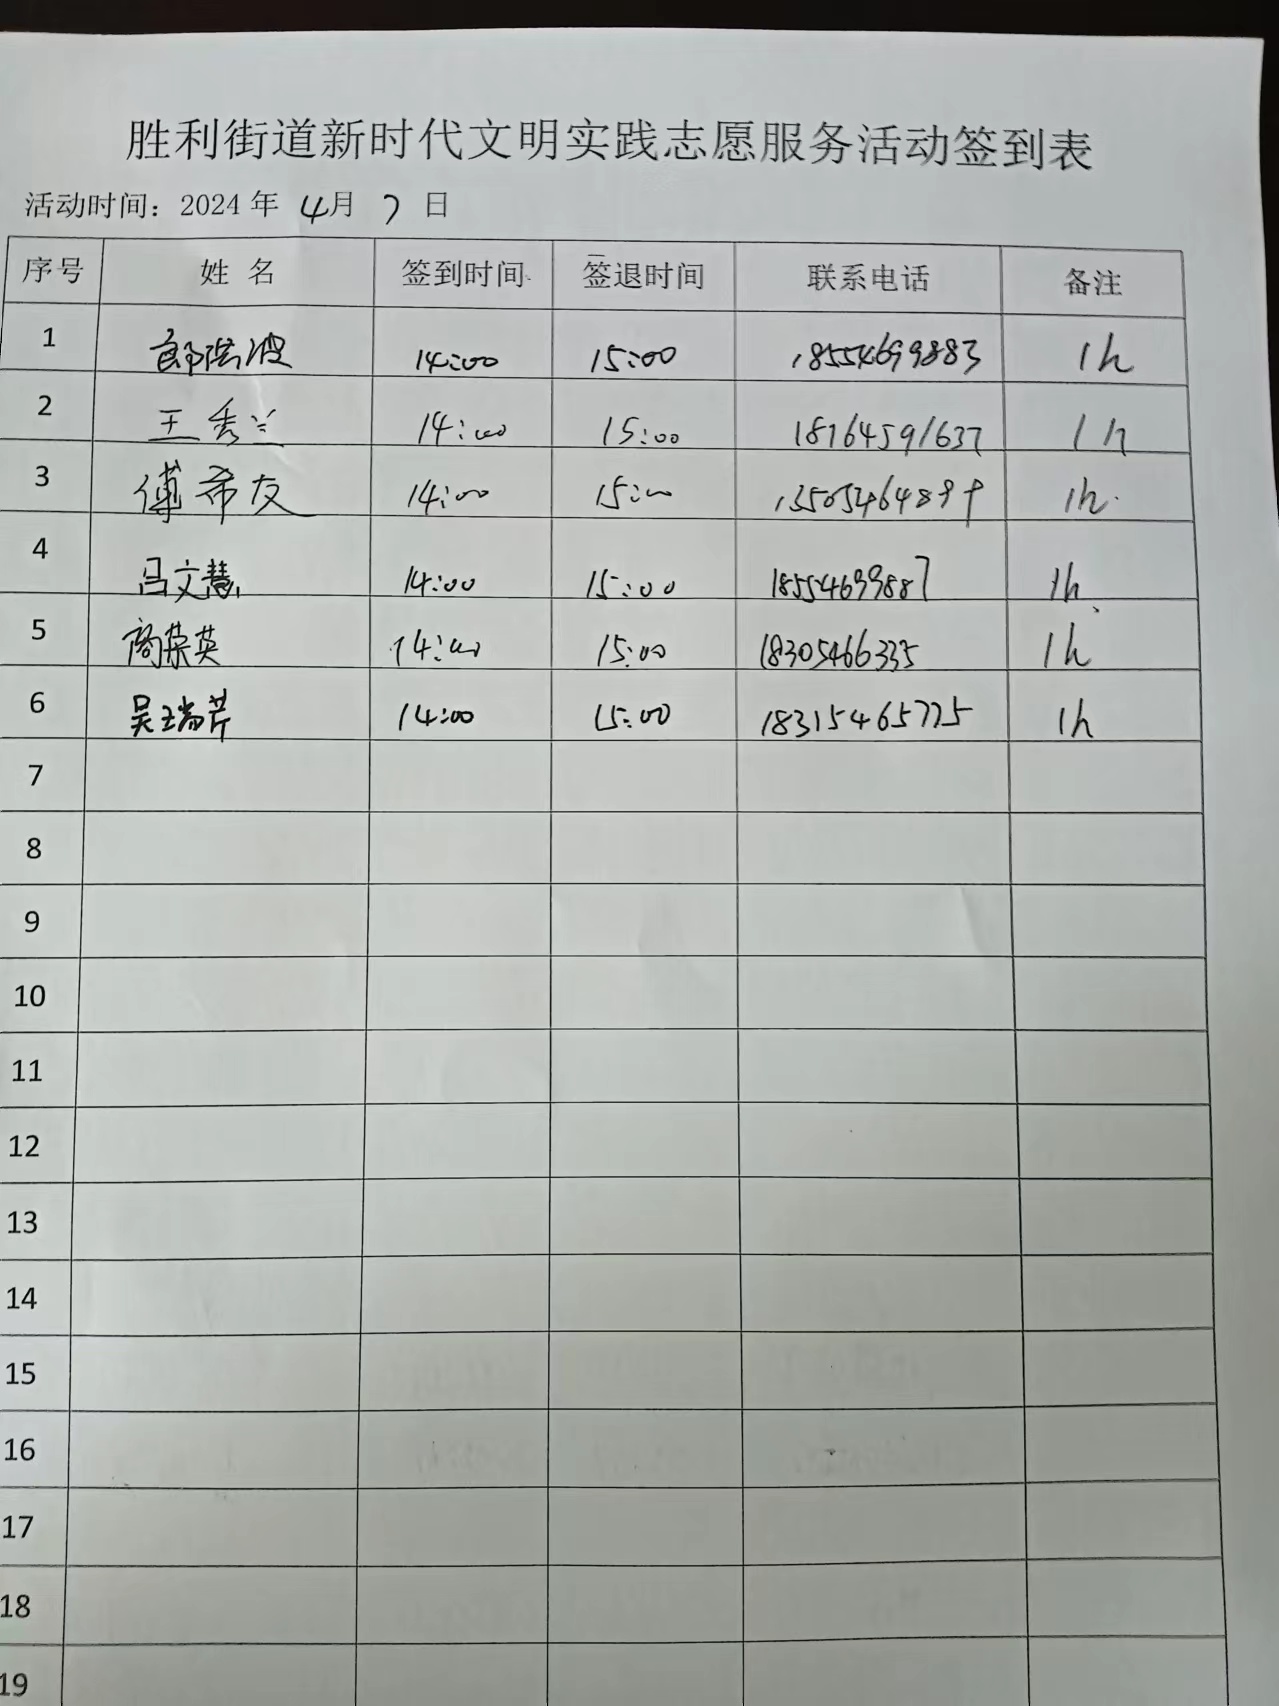 胜利街道新时代文明实践志愿服务活动签到表
活动时间：2024 年 4月 7 日
序号 姓 名 签到时间 签退时间 联系电话 备注
1 14:00 15:00 18554699883 1h
2 王秀兰 14:00 15:00 18764591637 1h
3 傅希友 14:00 15:00 13505464899 1h
4 冯文慧 14:00 15:00 18554699887 1h
5 商荣英 14:00 15:00 18305466335 1h
6 吴瑞芹 14:00 15:00 18315465775 1h
7
8
9
10
11
12
13
14
15
16
17
18
19